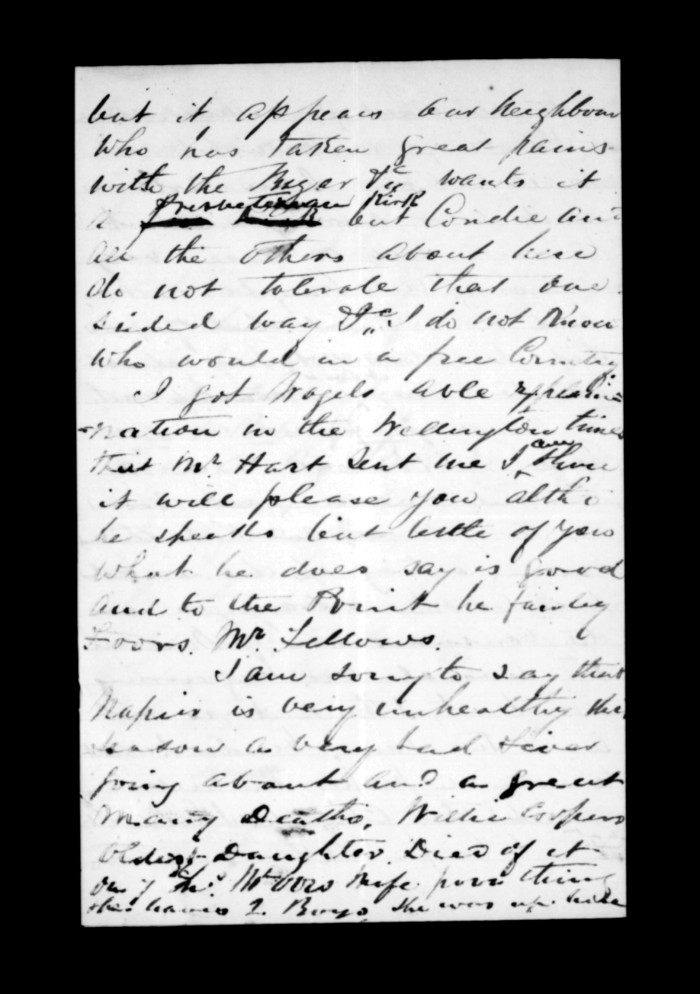 but it appears our Neighbour
who has taken great pains
with the &c wants it
a Presbeterian Kirk but Condie and
all the others about here
do not tolerate that one
sided way &c. I do not Know
who would in a free Country
I got Vogels able expla
-nation in the Wellington times
that Mr Hart sent me I am shure
it will please you altho
he speeks but little of you
what he does say is good
and to the Point he fairley
Floors. Mr Fellows.
I am sorry to say that
Napier is very unhealthy this
season a very bad fever
going about and a great
Many Deaths, Willie Coopers
Oldest Daughter. Died of it
wife poor thing
she leaves 2 Boys, she was up here